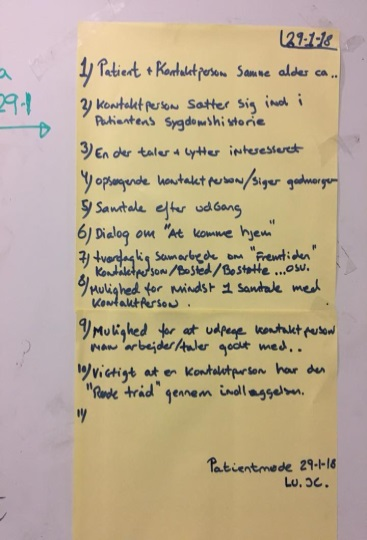 29-1-18
a
29-1
1) Patient + Kontaktperson Samme alder ca..
2) Kontaktperson Sætter Sig ind i
Patientens Sygdomshistorie
3) En der taler + Lytter interesseret
4) opsøgende kontaktperson/siger godmorgen
5) Samtale efter udgang
6) Dialog om "At komme hjem"
7) tværfaglig Samarbejde om "Fremtiden"
Kontaktperson/Bosted/Bostøtte ...osv.
8) Mulighed for mindst 1 samtale med
Kontaktperson.
9) Mulighed for at udpege kontaktperson
man arbejder/taler godt med..
10) Vigtigt at en Kontaktperson har den
"Røde tråd" gennem indlæggelsen.
11)
Patientmøde 29-1-18